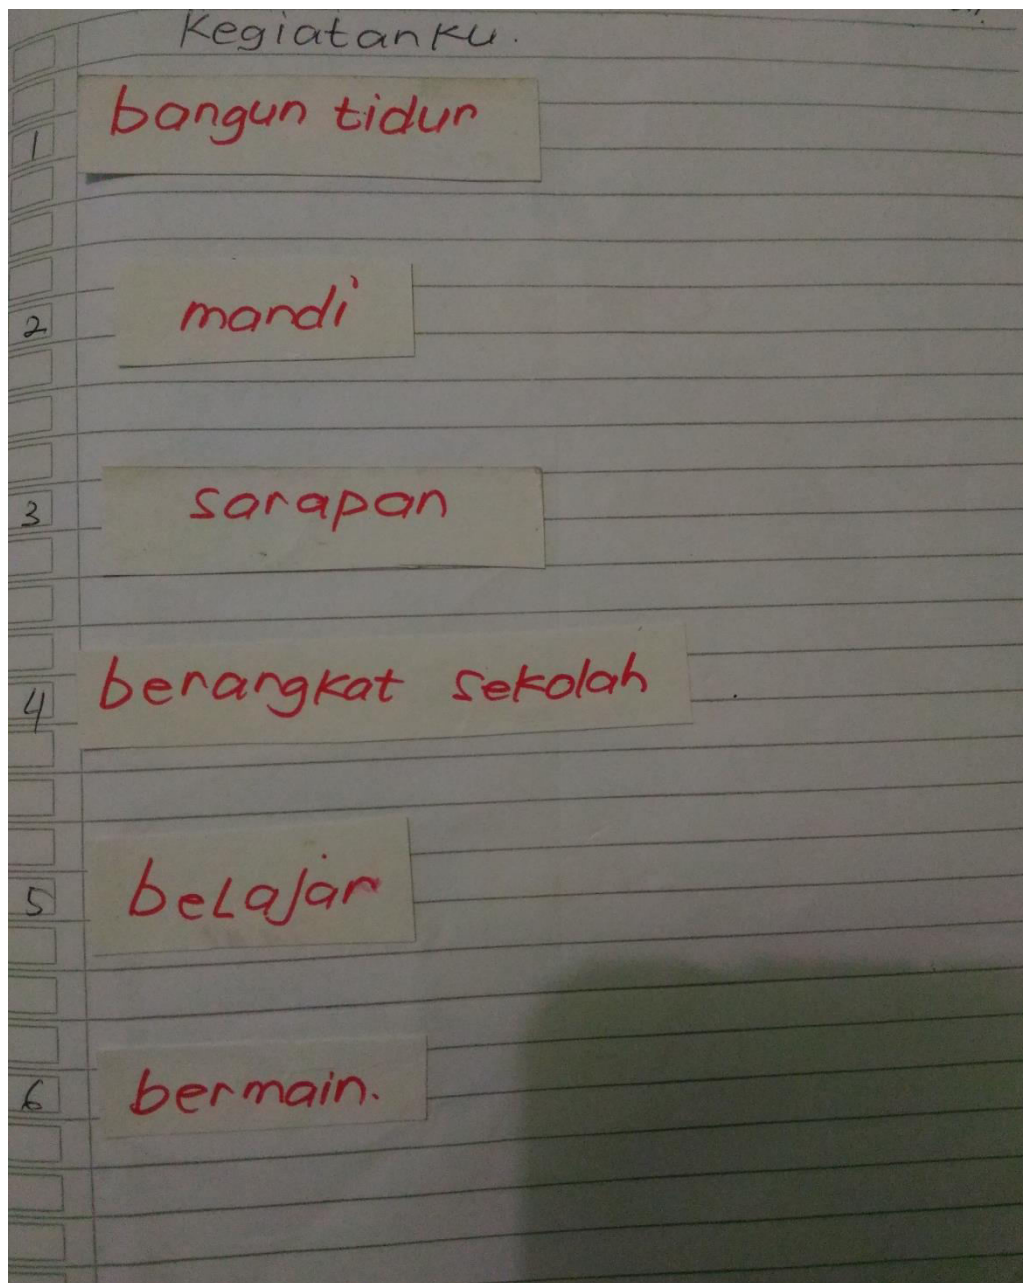 Kegiatanku.
1 bangun tidur
2 mandi
3 sarapan
4 berangkat sekolah
5 belajar
6 bermain.